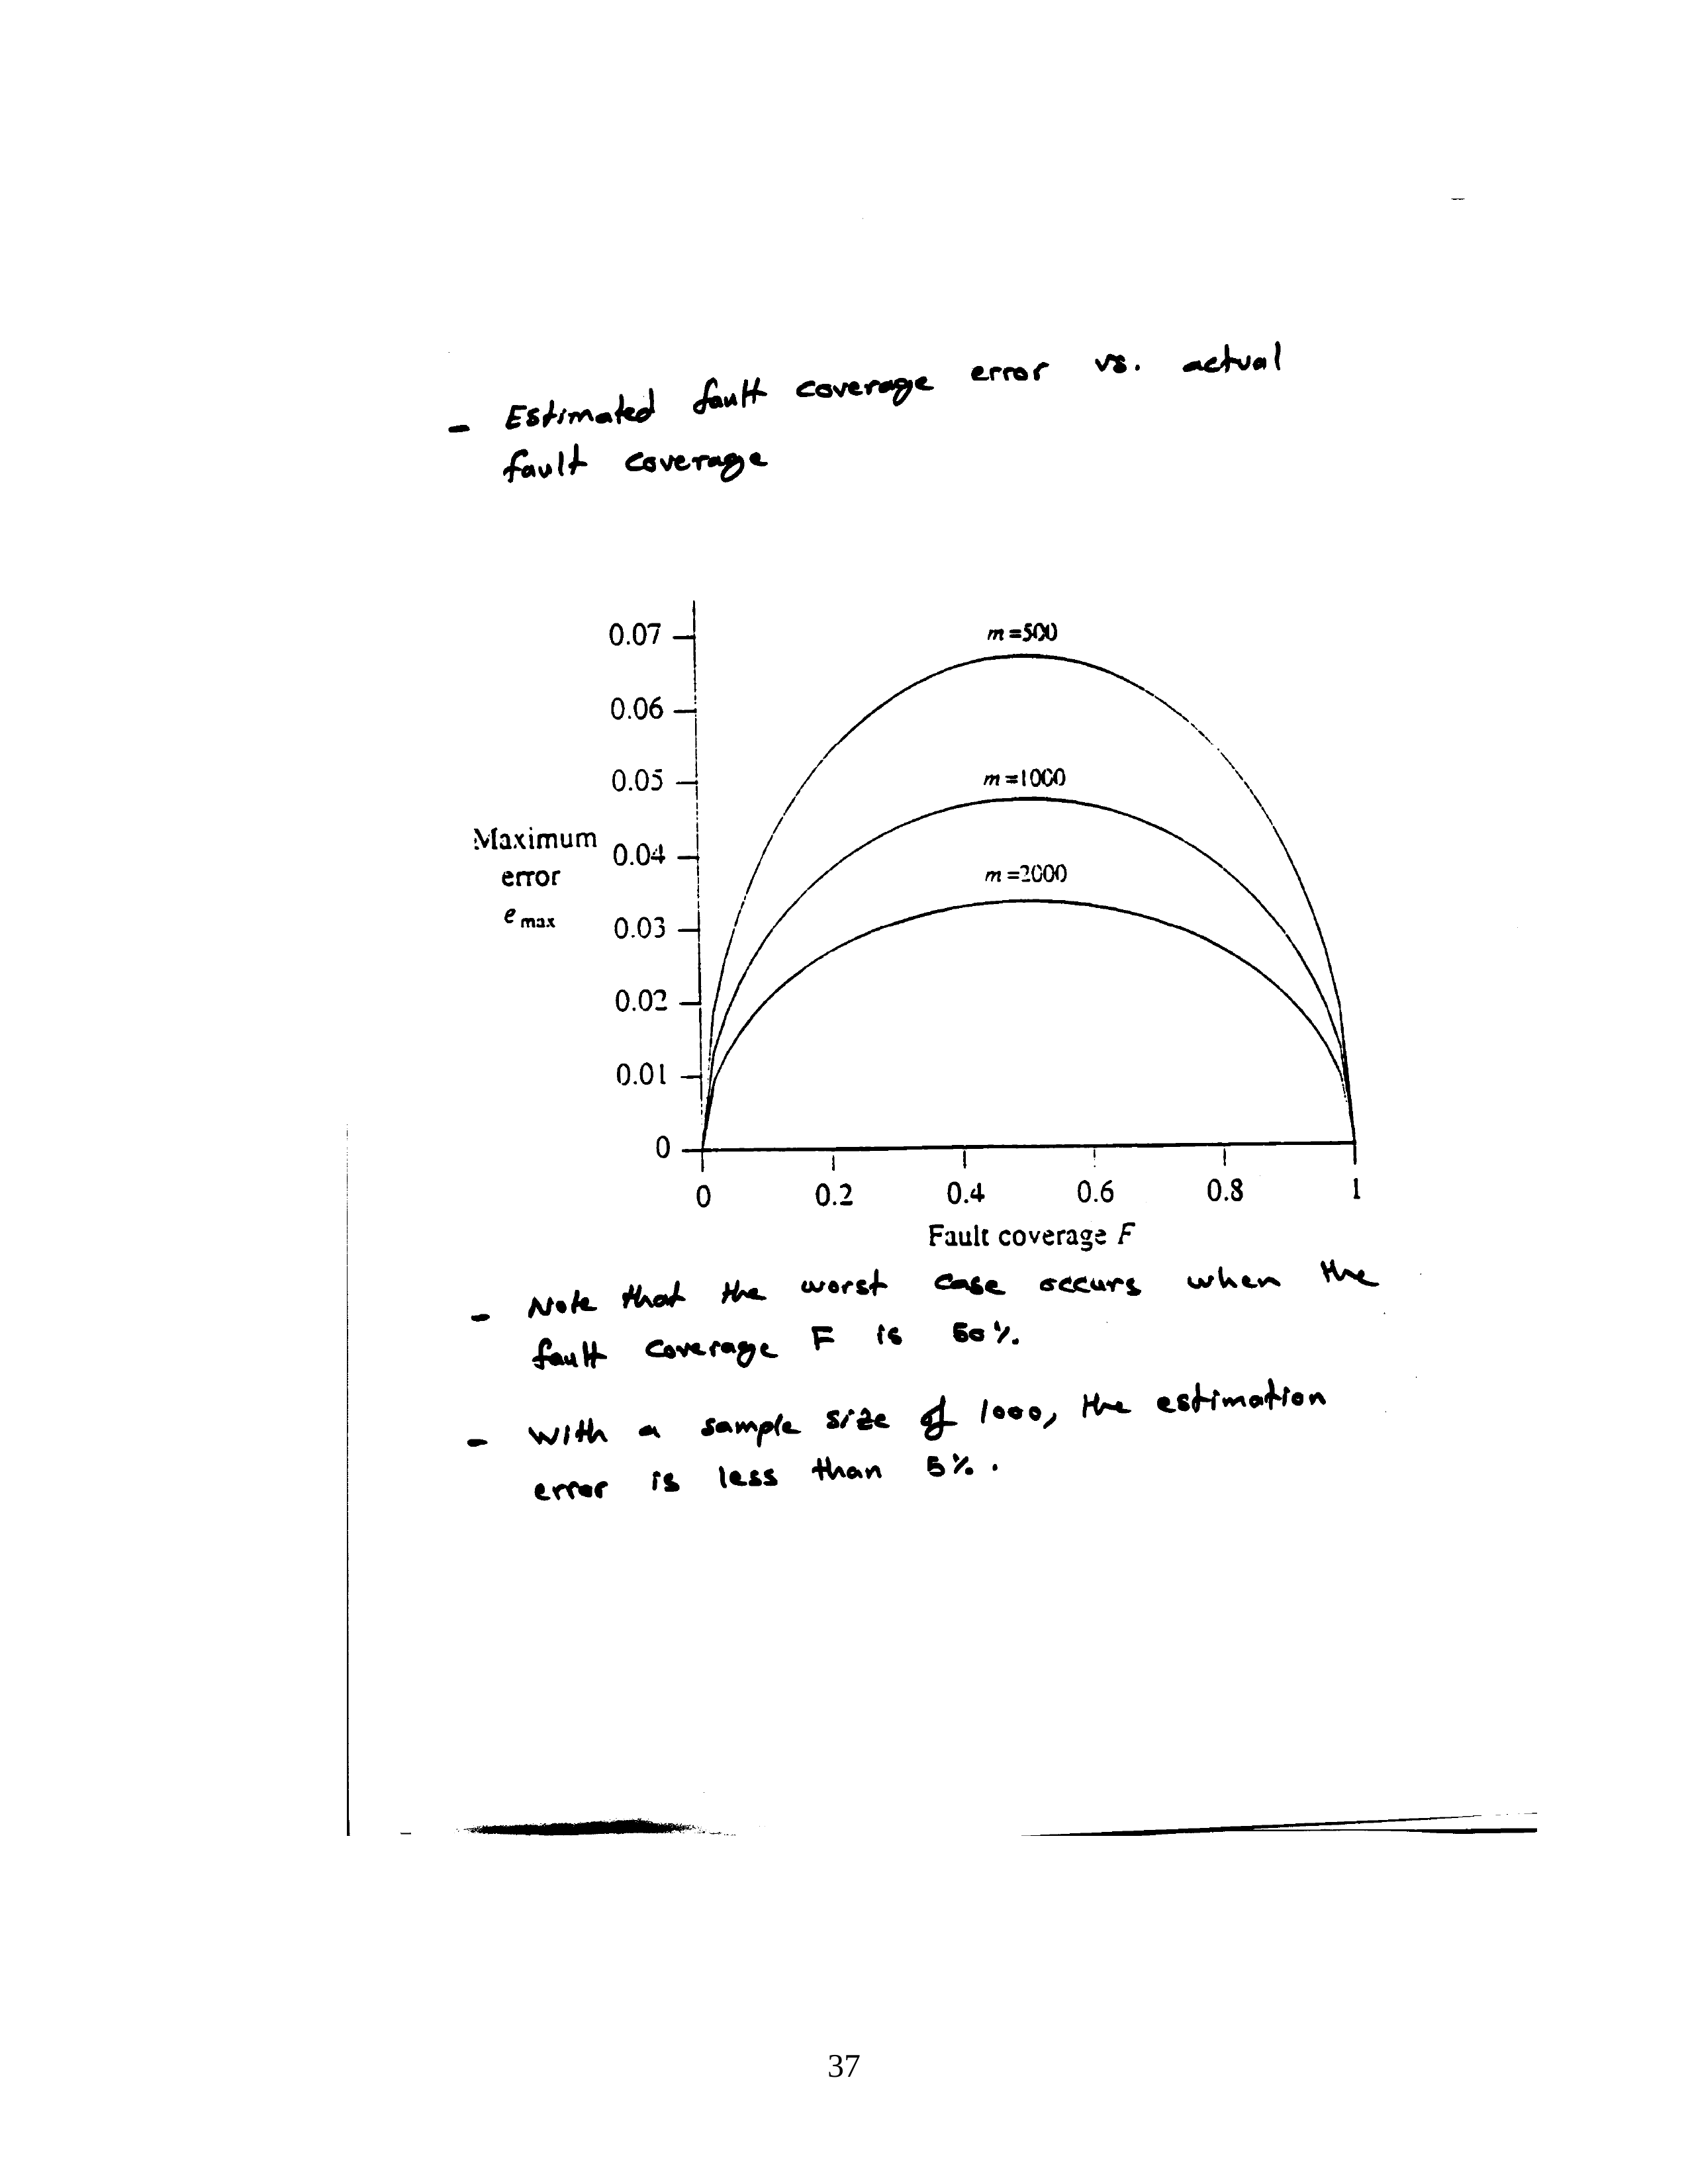 - Estimated fault coverage error vs. actual
fault coverage
0.07
m=500
0.06
0.05
m=1000
Maximum
error
e max
0.04
m=2000
0.03
0.02
0.01
0
0 0.2 0.4 0.6 0.8 1
Fault coverage F
- Note that the worst case occurs when the
fault coverage F is 50%.
- With a sample size of 1000, the estimation
error is less than 5%.
37